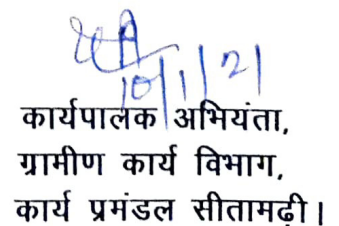 10/1/21
कार्यपालक अभियंता,
ग्रामीण कार्य विभाग,
कार्य प्रमंडल सीतामढ़ी।